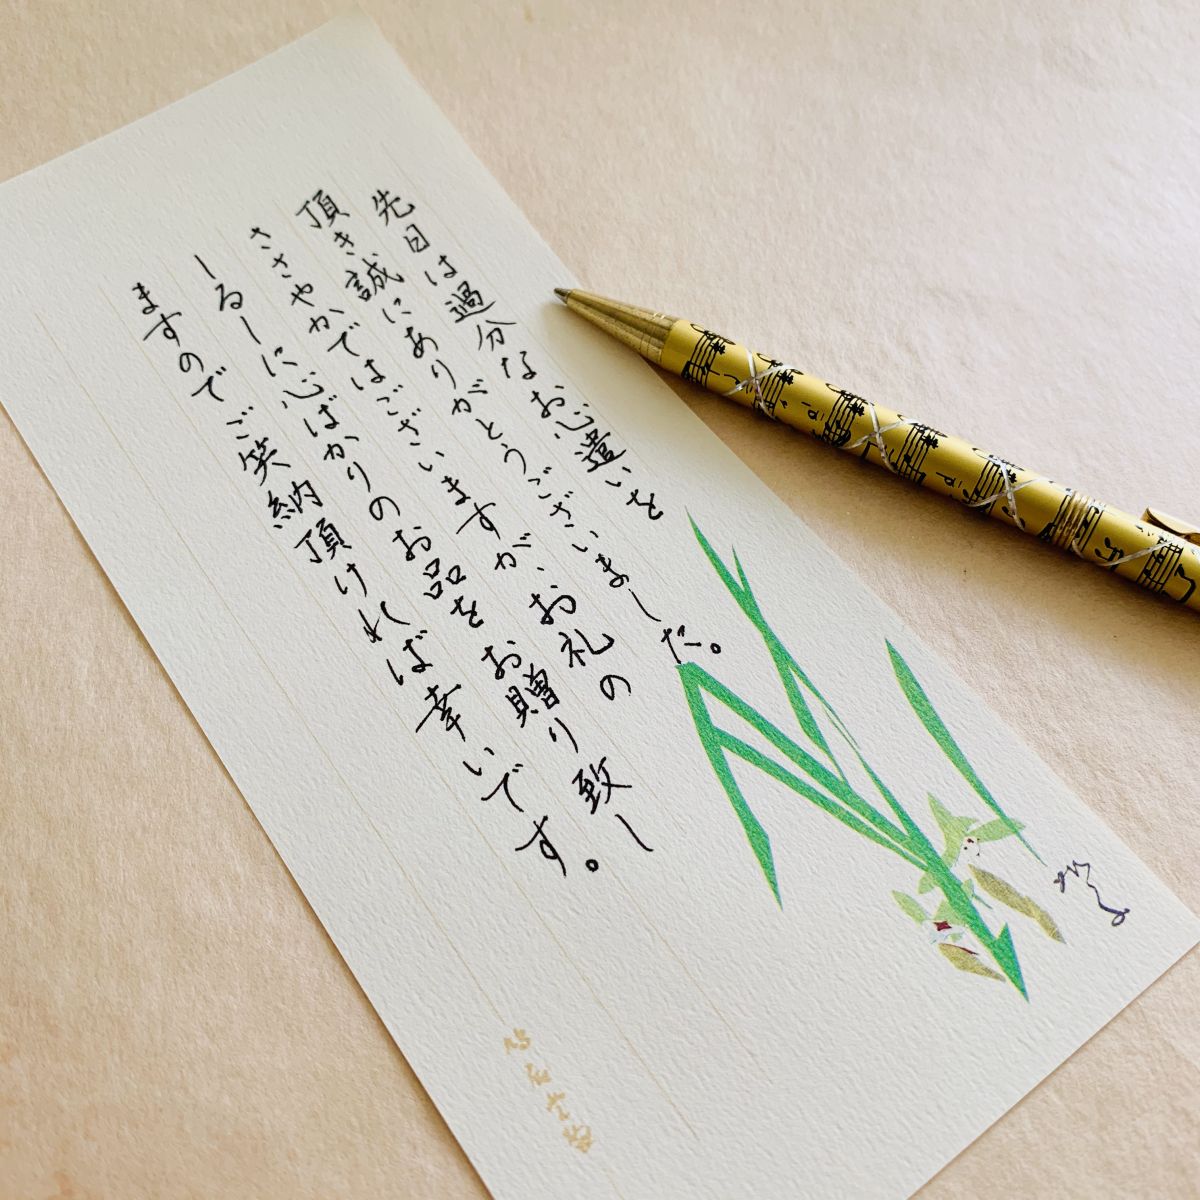 先日は過分なお心遣いを
頂き誠にありがとうございました。
ささやかではございますが、お礼の
しるしに心ばかりのお品をお贈り致し
ますのでご笑納頂ければ幸いです。
鳩居堂製